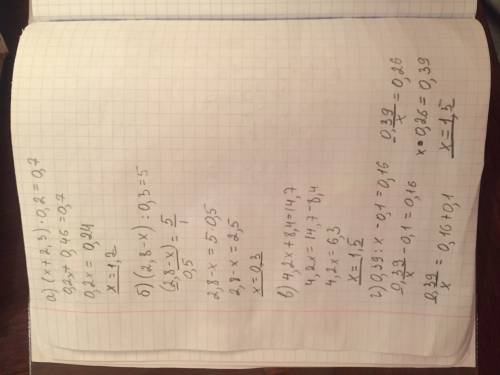 а) (x+2,3)·0,2=0,7
0,2x+0,46=0,7
0,2x=0,24
x=1,2
б) (2,8-x):0,3=5
(2,8-x)/0,5=5/1
2,8-x=5·0,5
2,8-x=2,5
x=0,3
в) 4,2x+8,4=14,7
4,2x=14,7-8,4
4,2x=6,3
x=1,5
г) 0,39:x-0,1=0,16
0,39/x-0,1=0,16
0,39/x=0,16+0,1
0,39/x=0,26
x·0,26=0,39
x=1,5